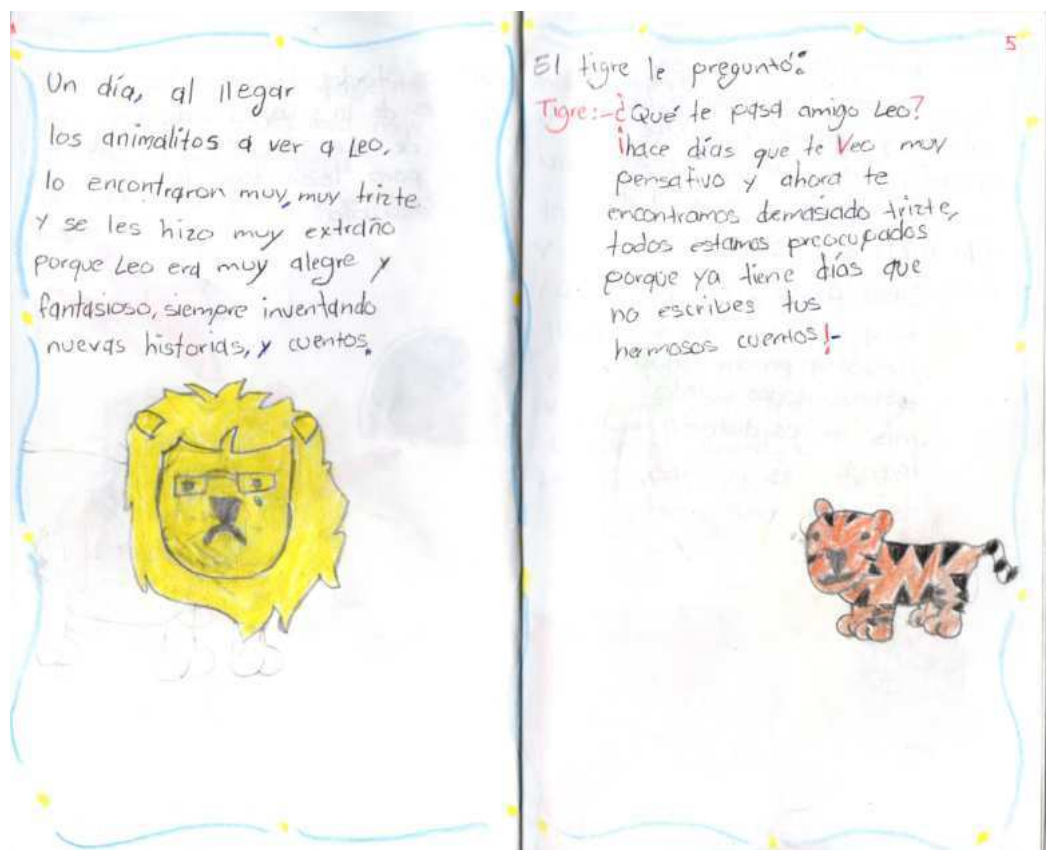 Un día, al llegar
los animalitos a ver a Leo,
lo encontraron muy, muy trizte
y se les hizo muy extraño
porque Leo era muy alegre y
fantasioso, siempre inventando
nuevas historias, y cuentos.
5
El tigre le preguntó:
Tigre:-¿Qué te pasa amigo Leo?
¡hace días que te Veo muy
pensativo y ahora te
encontramos demasiado trizte,
todos estamos preocupados
porque ya tiene días que
no escribes tus
hermosos cuentos!-